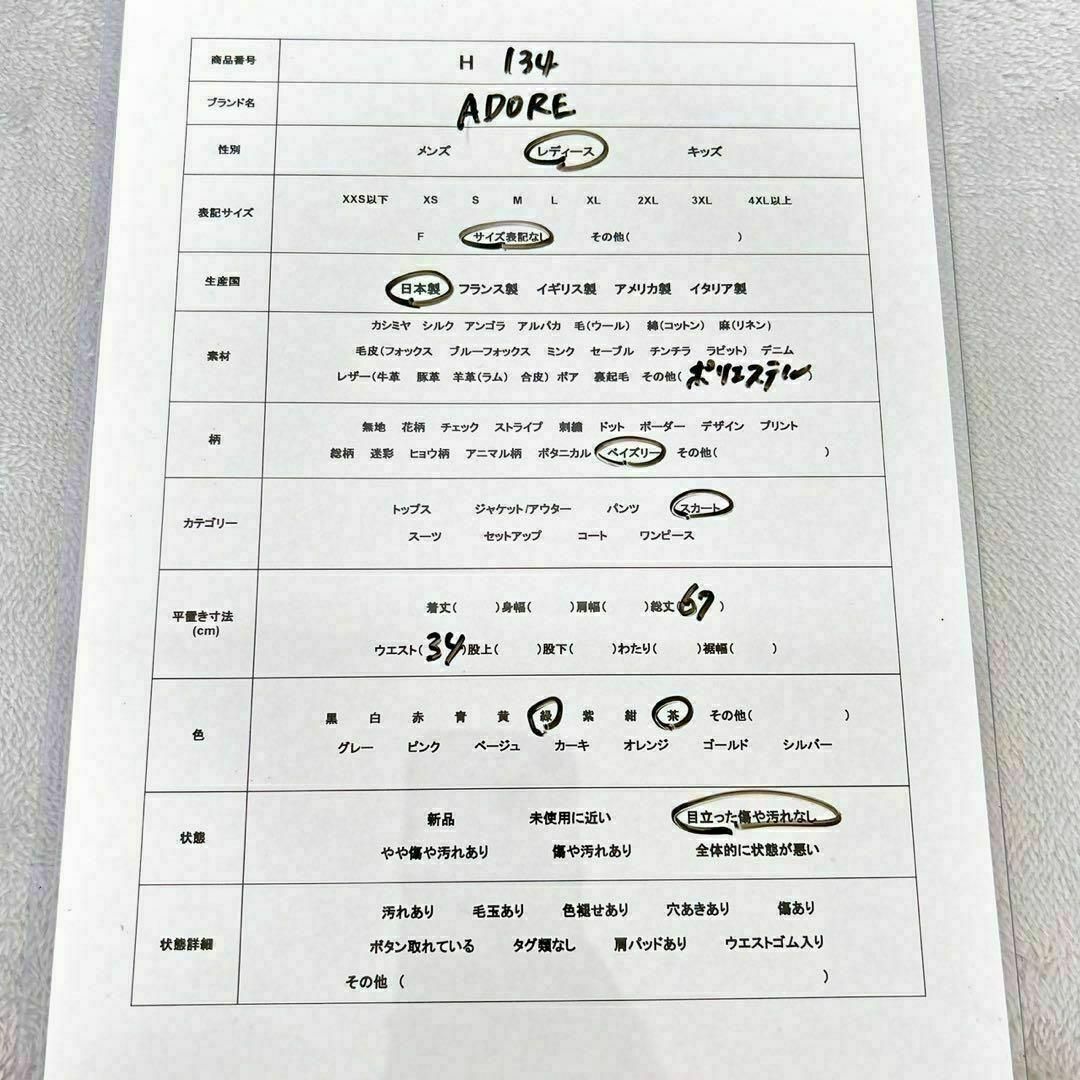 商品番号 H 134
ブランド名 ADORE
性別 メンズ レディース キッズ
XXS以下 XS S M L XL 2XL 3XL 4XL以上
表記サイズ
F サイズ表記なし その他( )
生産国 日本製 フランス製 イギリス製 アメリカ製 イタリア製
カシミヤ シルク アンゴラ アルパカ 毛(ウール) 綿(コットン) 麻(リネン)
素材 毛皮(フォックス ブルーフォックス ミンク セーブル チンチラ ラビット) デニム
レザー(牛革 豚革 羊革(ラム) 合皮) ボア 裏起毛 その他(ポリエステル)
無地 花柄 チェック ストライプ 刺繍 ドット ボーダー デザイン プリント
柄
総柄 迷彩 ヒョウ柄 アニマル柄 ボタニカル ペイズリー その他( )
トップス ジャケット/アウター パンツ スカート
カテゴリー
スーツ セットアップ コート ワンピース
着丈( )身幅( )肩幅( )総丈(67)
平置き寸法
(cm)
ウエスト(34)股上( )股下( )わたり( )裾幅( )
黒 白 赤 青 黄 緑 紫 紺 茶 その他( )
色
グレー ピンク ベージュ カーキ オレンジ ゴールド シルバー
新品 未使用に近い 目立った傷や汚れなし
状態
やや傷や汚れあり 傷や汚れあり 全体的に状態が悪い
汚れあり 毛玉あり 色褪せあり 穴あきあり 傷あり
状態詳細 ボタン取れている タグ類なし 肩パッドあり ウエストゴム入り
その他 ( )